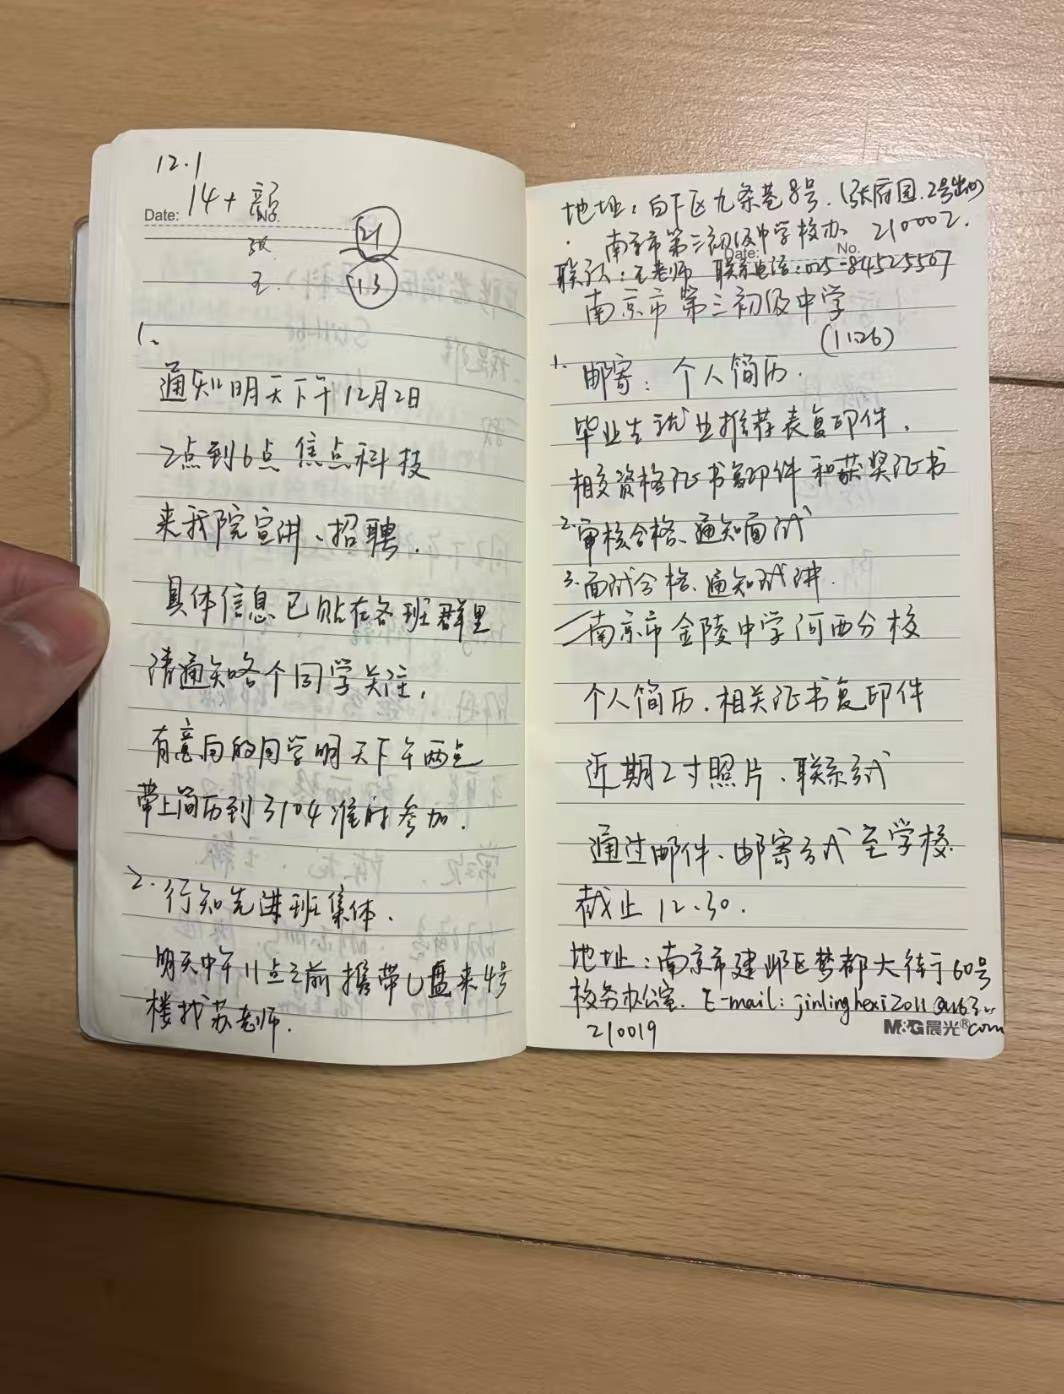 12.1
Date: 14+
No.
21
王
13
1、
通知明天下午12月2日
2点到6点 焦点科技
来我院宣讲、招聘.
具体信息已贴在各班群里
请通知各个同学关注,
有意向的同学明天下午两点
带上简历到3104准时参加.
2. 行知先进班集体.
明天中午11点之前携带U盘来4号
楼找苏老师.
地址:白下区九条巷8号.(张府园.2号出口)
南京市第三初级中学校办. 210002.
Date:
No.
联系人:王老师 联系电话:025-84525507
南京市第三初级中学
(1126)
1. 邮寄: 个人简历.
毕业生就业推荐表复印件.
相关资格证书复印件和获奖证书
2.审核合格、通知面试
3.面试合格、通知试讲.
南京市金陵中学河西分校
个人简历.相关证书复印件
近期2寸照片.联系方式
通过邮件、邮寄方式至学校.
截止 12.30.
地址:南京市建邺区梦都大街60号
校务办公室. E-mail: jinlinghexi2011@163.
com
210019
M&G晨光®